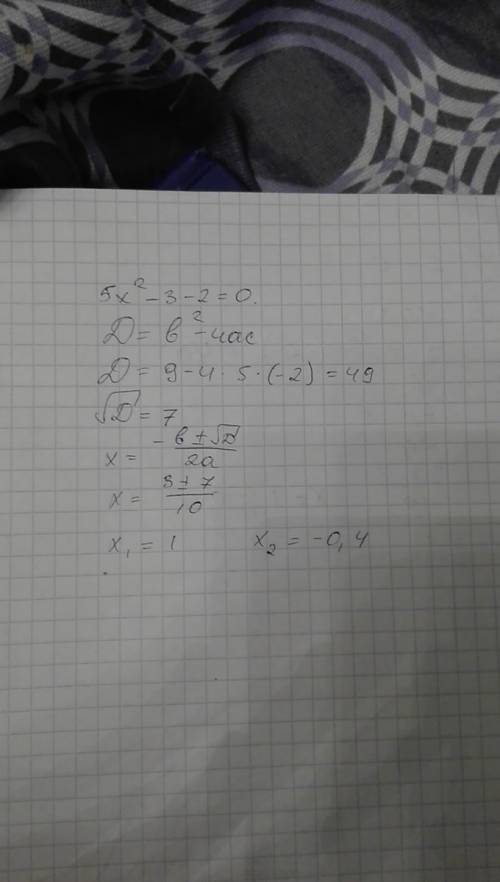 5x² - 3 - 2 = 0.
D = b² - 4ac
D = 9 - 4 · 5 · (-2) = 49
√D = 7
x = -b ± √D / 2a
x = 3 ± 7 / 10
x₁ = 1 x₂ = -0,4